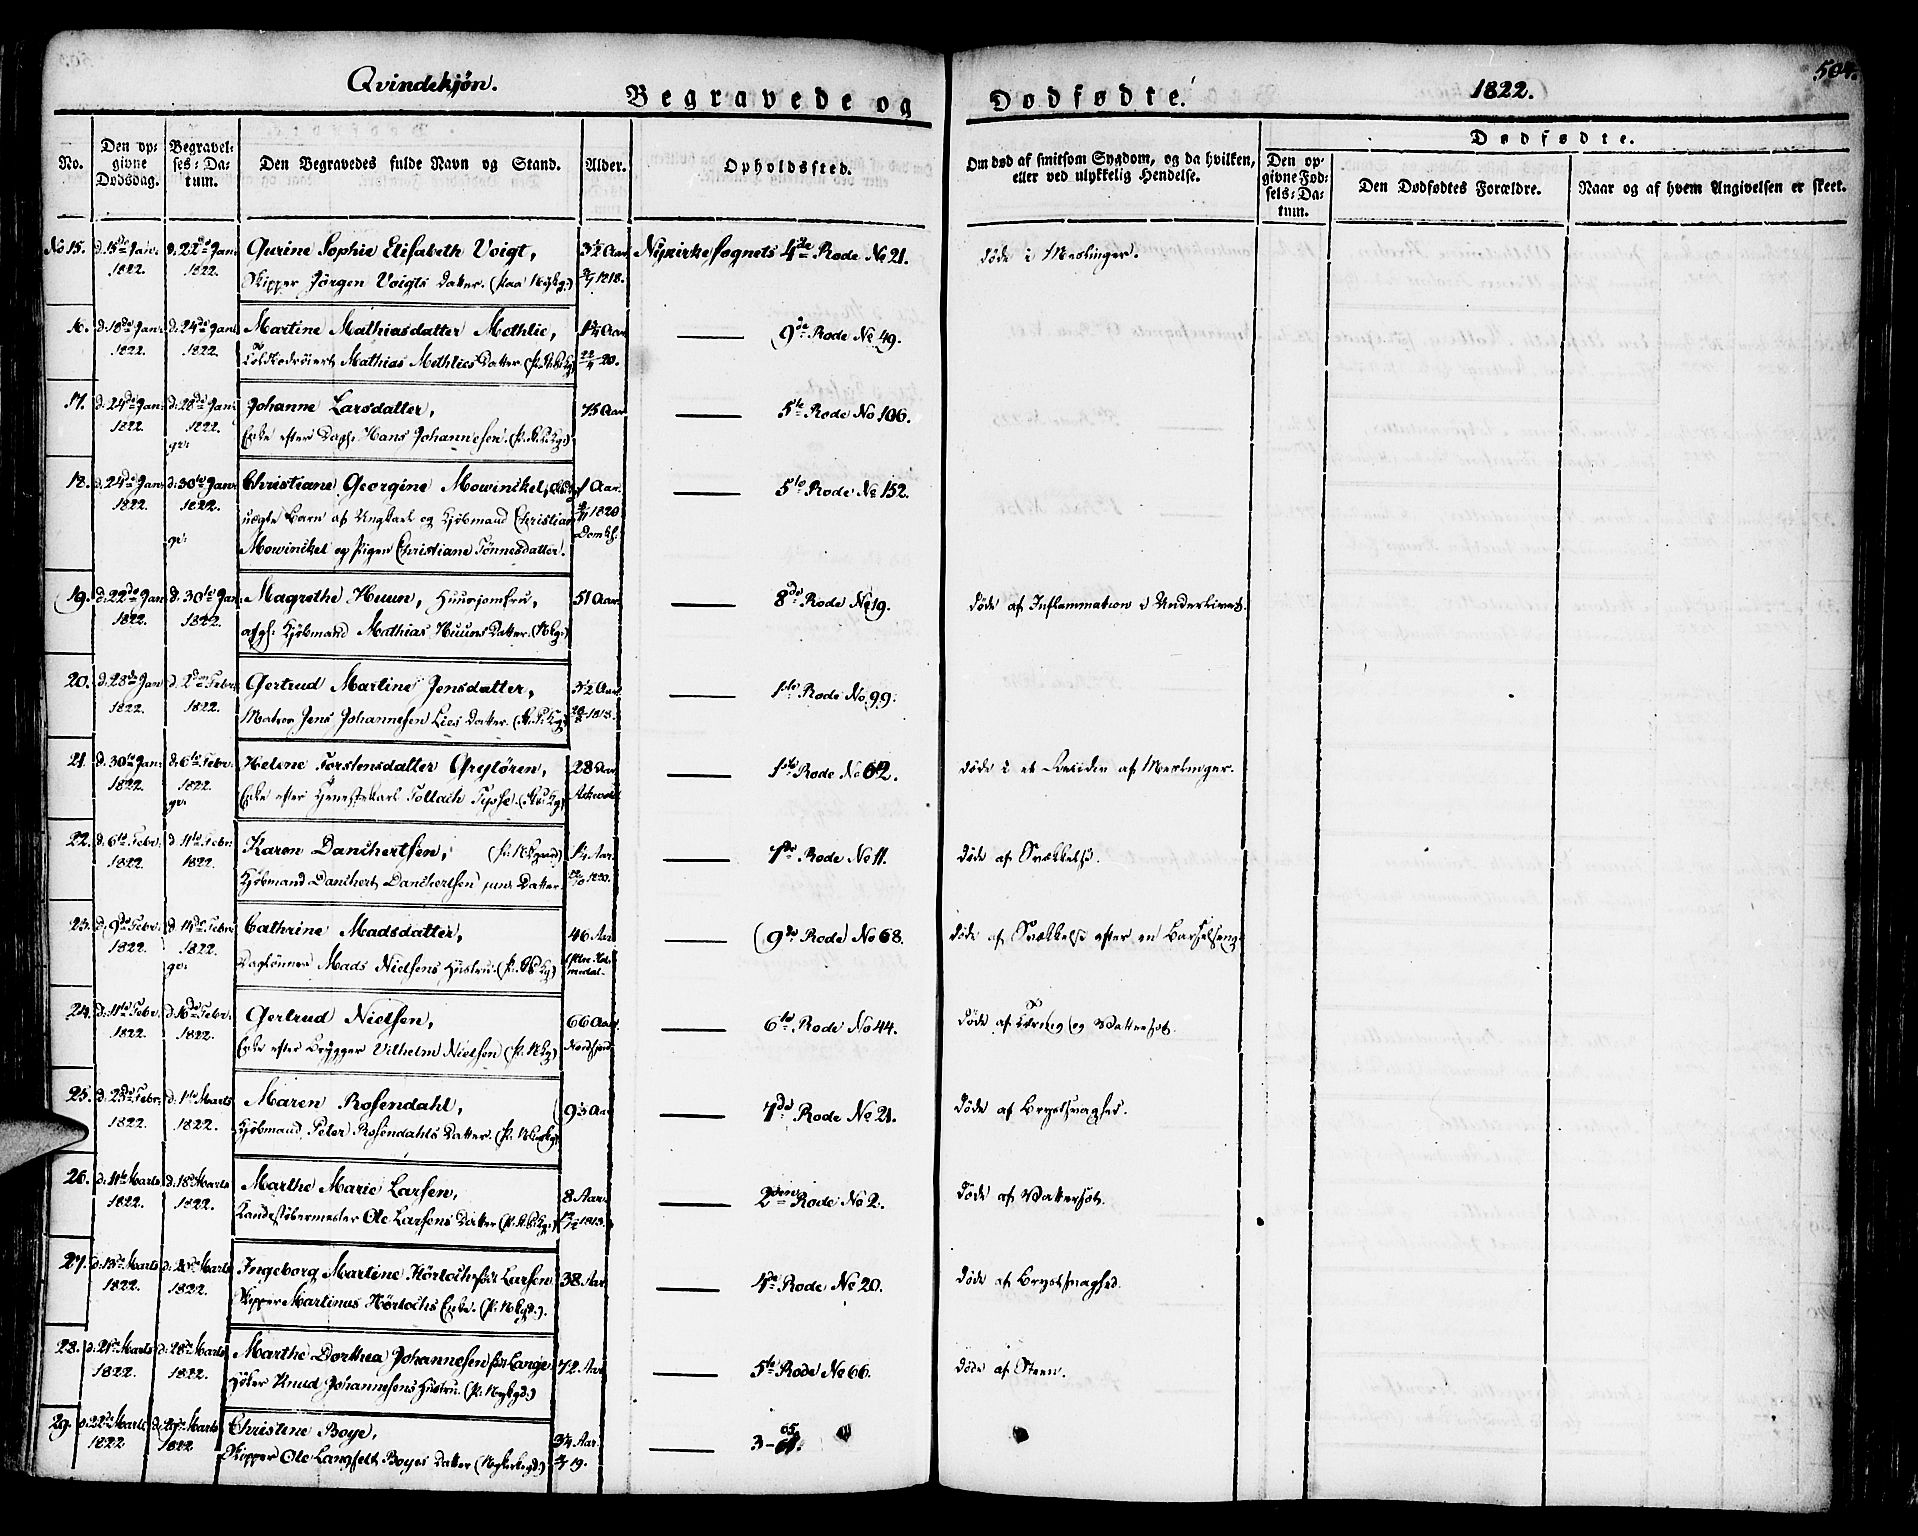 504.
Qvindekjøn.
Begravede og Dødfødte.
1822.
No.
Den opgivne Dødsdag.
Begravelses-Datum.
Den Begravedes fulde Navn og Stand.
Alder.
Opholdssted.
Om død af smitsom Sygdom, og da hvilken, eller ved ulykkelig Hendelse.
Dødfødte.
Den opgivne Fødsels-Datum.
Den Dødfødtes Forældre.
Naar og af hvem Angivelsen er skeet.
No 15. d. 15de Jan: d. 22de Jan: Gurine Sophie Elisabeth Voigt, 3½ Aar Nykirkesognets 4de Rode No 21. døde i Meslinger.
1822. 1822. Skipper Jørgen Voigts Datter. (paa Nykg:) 1818.
16. d. 18de Jan: d. 24de Jan: Martine Mathiasdatter Methlie, 1¾ Aar — 9de Rode No 49.
1822. 1822. Mathias Methlies Datter 20.
17. d. 24de Jan: d. 28de Jan: Johanne Larsdatter, 75 Aar — 5te Rode No 106.
1822. 1822. Enke efter Dagk. Hans Johannesen.
18. d. 24de Jan: d. 30te Jan: Christiane Georgine Mowinckel, 1 Aar. — 5te Rode No 152.
1822. 1822. uægte Barn af Ungkarl og Kjøbmand Christian 1820
Mowinckel og Pigen Christiane Tønnesdatter. Domk.
19. d. 22de Jan d. 30te Jan. Magrethe Huun, Huusjomfru, 51 Aar — 8de Rode No 19. døde af Inflammation i Underlivet.
1822. 1822. afg: Kjøbmand Mathias Huuns Datter. (Nkg:)
20. d. 28de Jan d. 2den Febr: Gertrud Martine Jensdatter, 3½ Aar — 1ste Rode No 99.
1822. 1822. Matros Jens Johannesen Lies Datter. 1818.
21. d. 30te Jan: d. 6te Febr. Helene Torstensdatter Øreytøren, 28 Aar — 1ste Rode No 62. døde i et Recidiv af Meslinger.
1822. 1822. Enke efter Tjenestekarl Tollach Tysse. Askvold
22. d. 6te Febr. d. 11te Febr: Karen Danchertsen, 1¼ Aar. — 7de Rode No 11. døde af Svækkelse.
1822. 1822. Kjøbmand Danchert Danchertsen jun: Datter 1820.
23. d. 9de Febr. d. 14de Febr Cathrine Madsdatter, 46 Aar — 9de Rode No 68. døde af Svækkelse efter en Barselseng
1822. 1822. Daglønner Mads Nielsens Hustru.
24. d. 11te Febr. d. 16de Febr. Gertrud Nielsen, 66 Aar. — 6te Rode No 44. døde af Tæring og Vattersot.
1822. 1822. Enke efter Brygger Vilhelm Nielsen (p. Nkg) Nordfjord
25. d. 23de Febr: d. 1te Marts Maren Rosendahl, 93 Aar — 7de Rode No 21. døde af Brystsvaghed.
1822. 1822. Kjøbmand Peter Rosendahls Datter.
26. d. 11te Marts d. 18de Marts Marthe Marie Larsen, 8 Aar. — 2den Rode No 2. døde af Vattersot.
1822. 1822. Ole Larsens Datter 1813.
27. d. 15de Marts d. Marts Ingeborg Martine Hörloch født Larsen 38 Aar. — 4de Rode No 20. døde af Brystsvaghed.
1822. 1822. Skipper Martinus Hörlochs Enke. (p. Nkgd.)
28. d. 21de Marts d. 28de Marts Marthe Dorthea Johannesen født Lange 72 Aar — 5te Rode No 66. døde af Steen.
1822. 1822. Høker Knud Johannesens Hustru. (p. Nykgd.)
29. d. 22de Marts d. 29de Marts Christine Boye, 3¼ Aar. — 3 - 65
1822 1822 Skipper Ole Langfelt Boyes Datter 19.